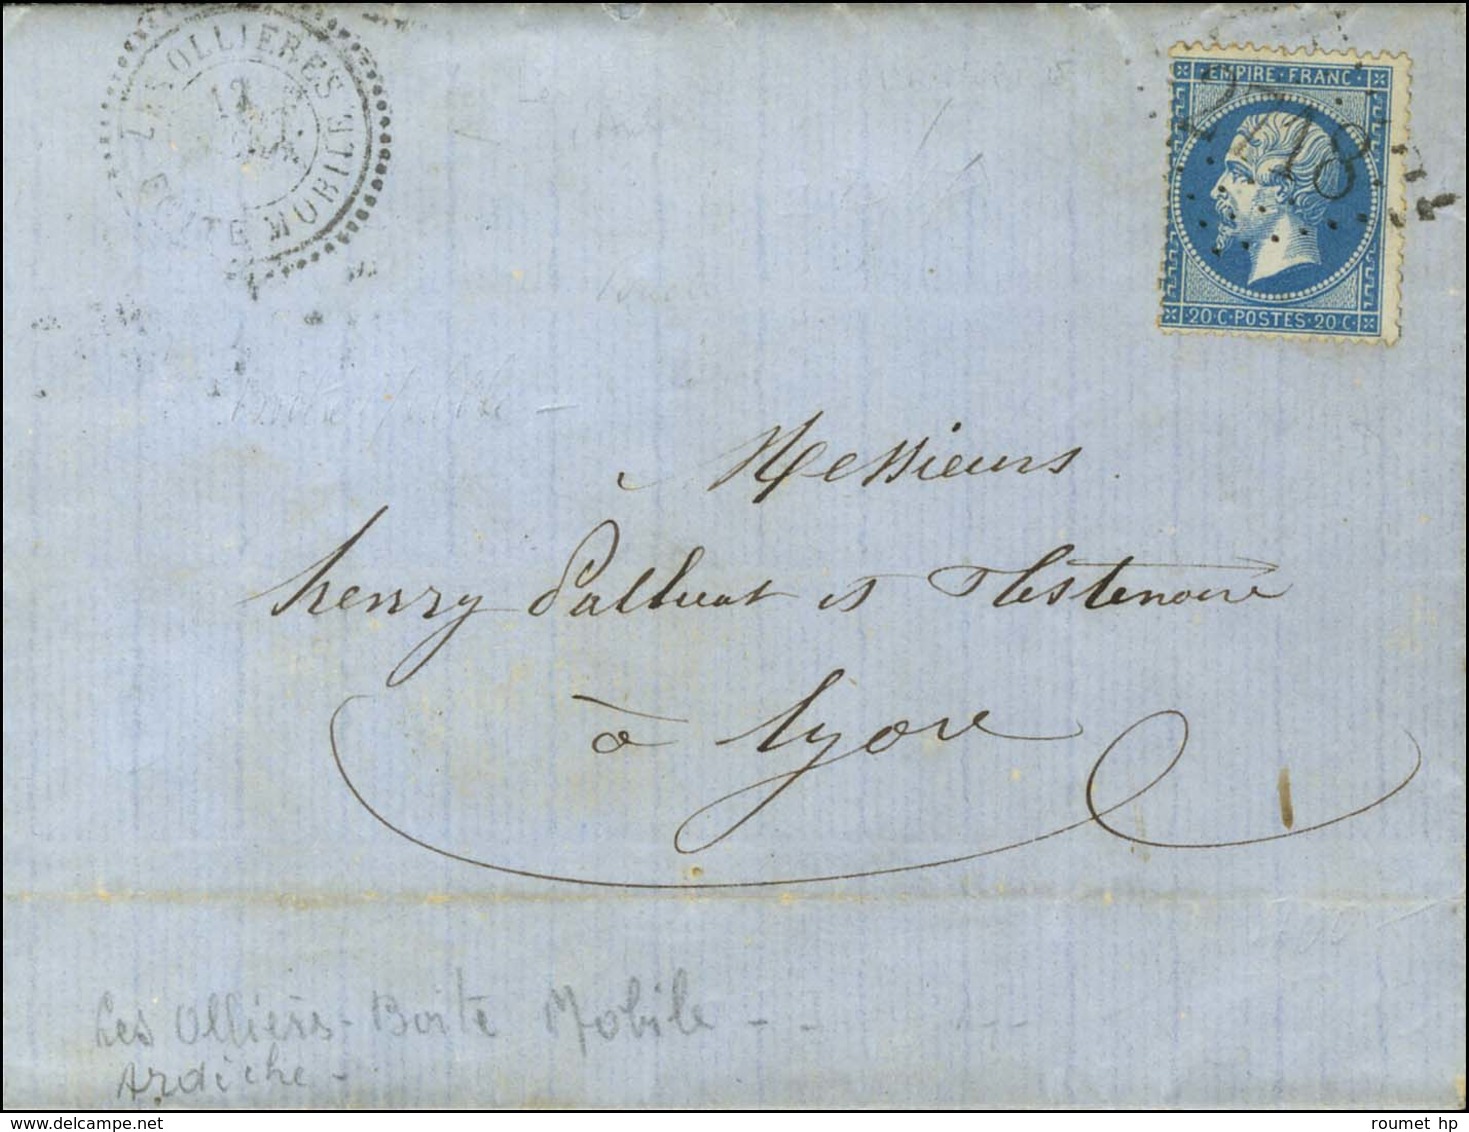 LES OLLIERES
12
BOITE MOBILE
2718
EMPIRE · FRANC ·
20 C · POSTES · 20 C ·
Messieurs
henry Palluat et Testenoire
à Lyon
Les Ollières - Boite Mobile - -
Ardèche -
roumet hp